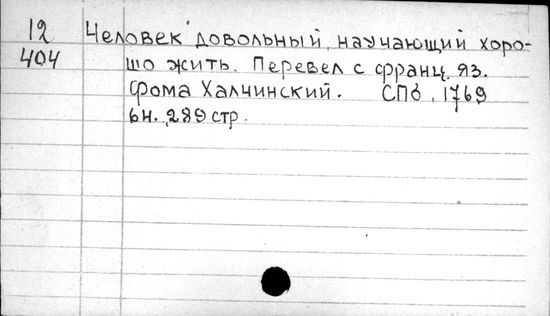 12 Человек довольный, научающий хоро-
404 шо жить. Перевел с франц. яз.
Фома Халчинский. СПб, 1769
6н., 289 стр.